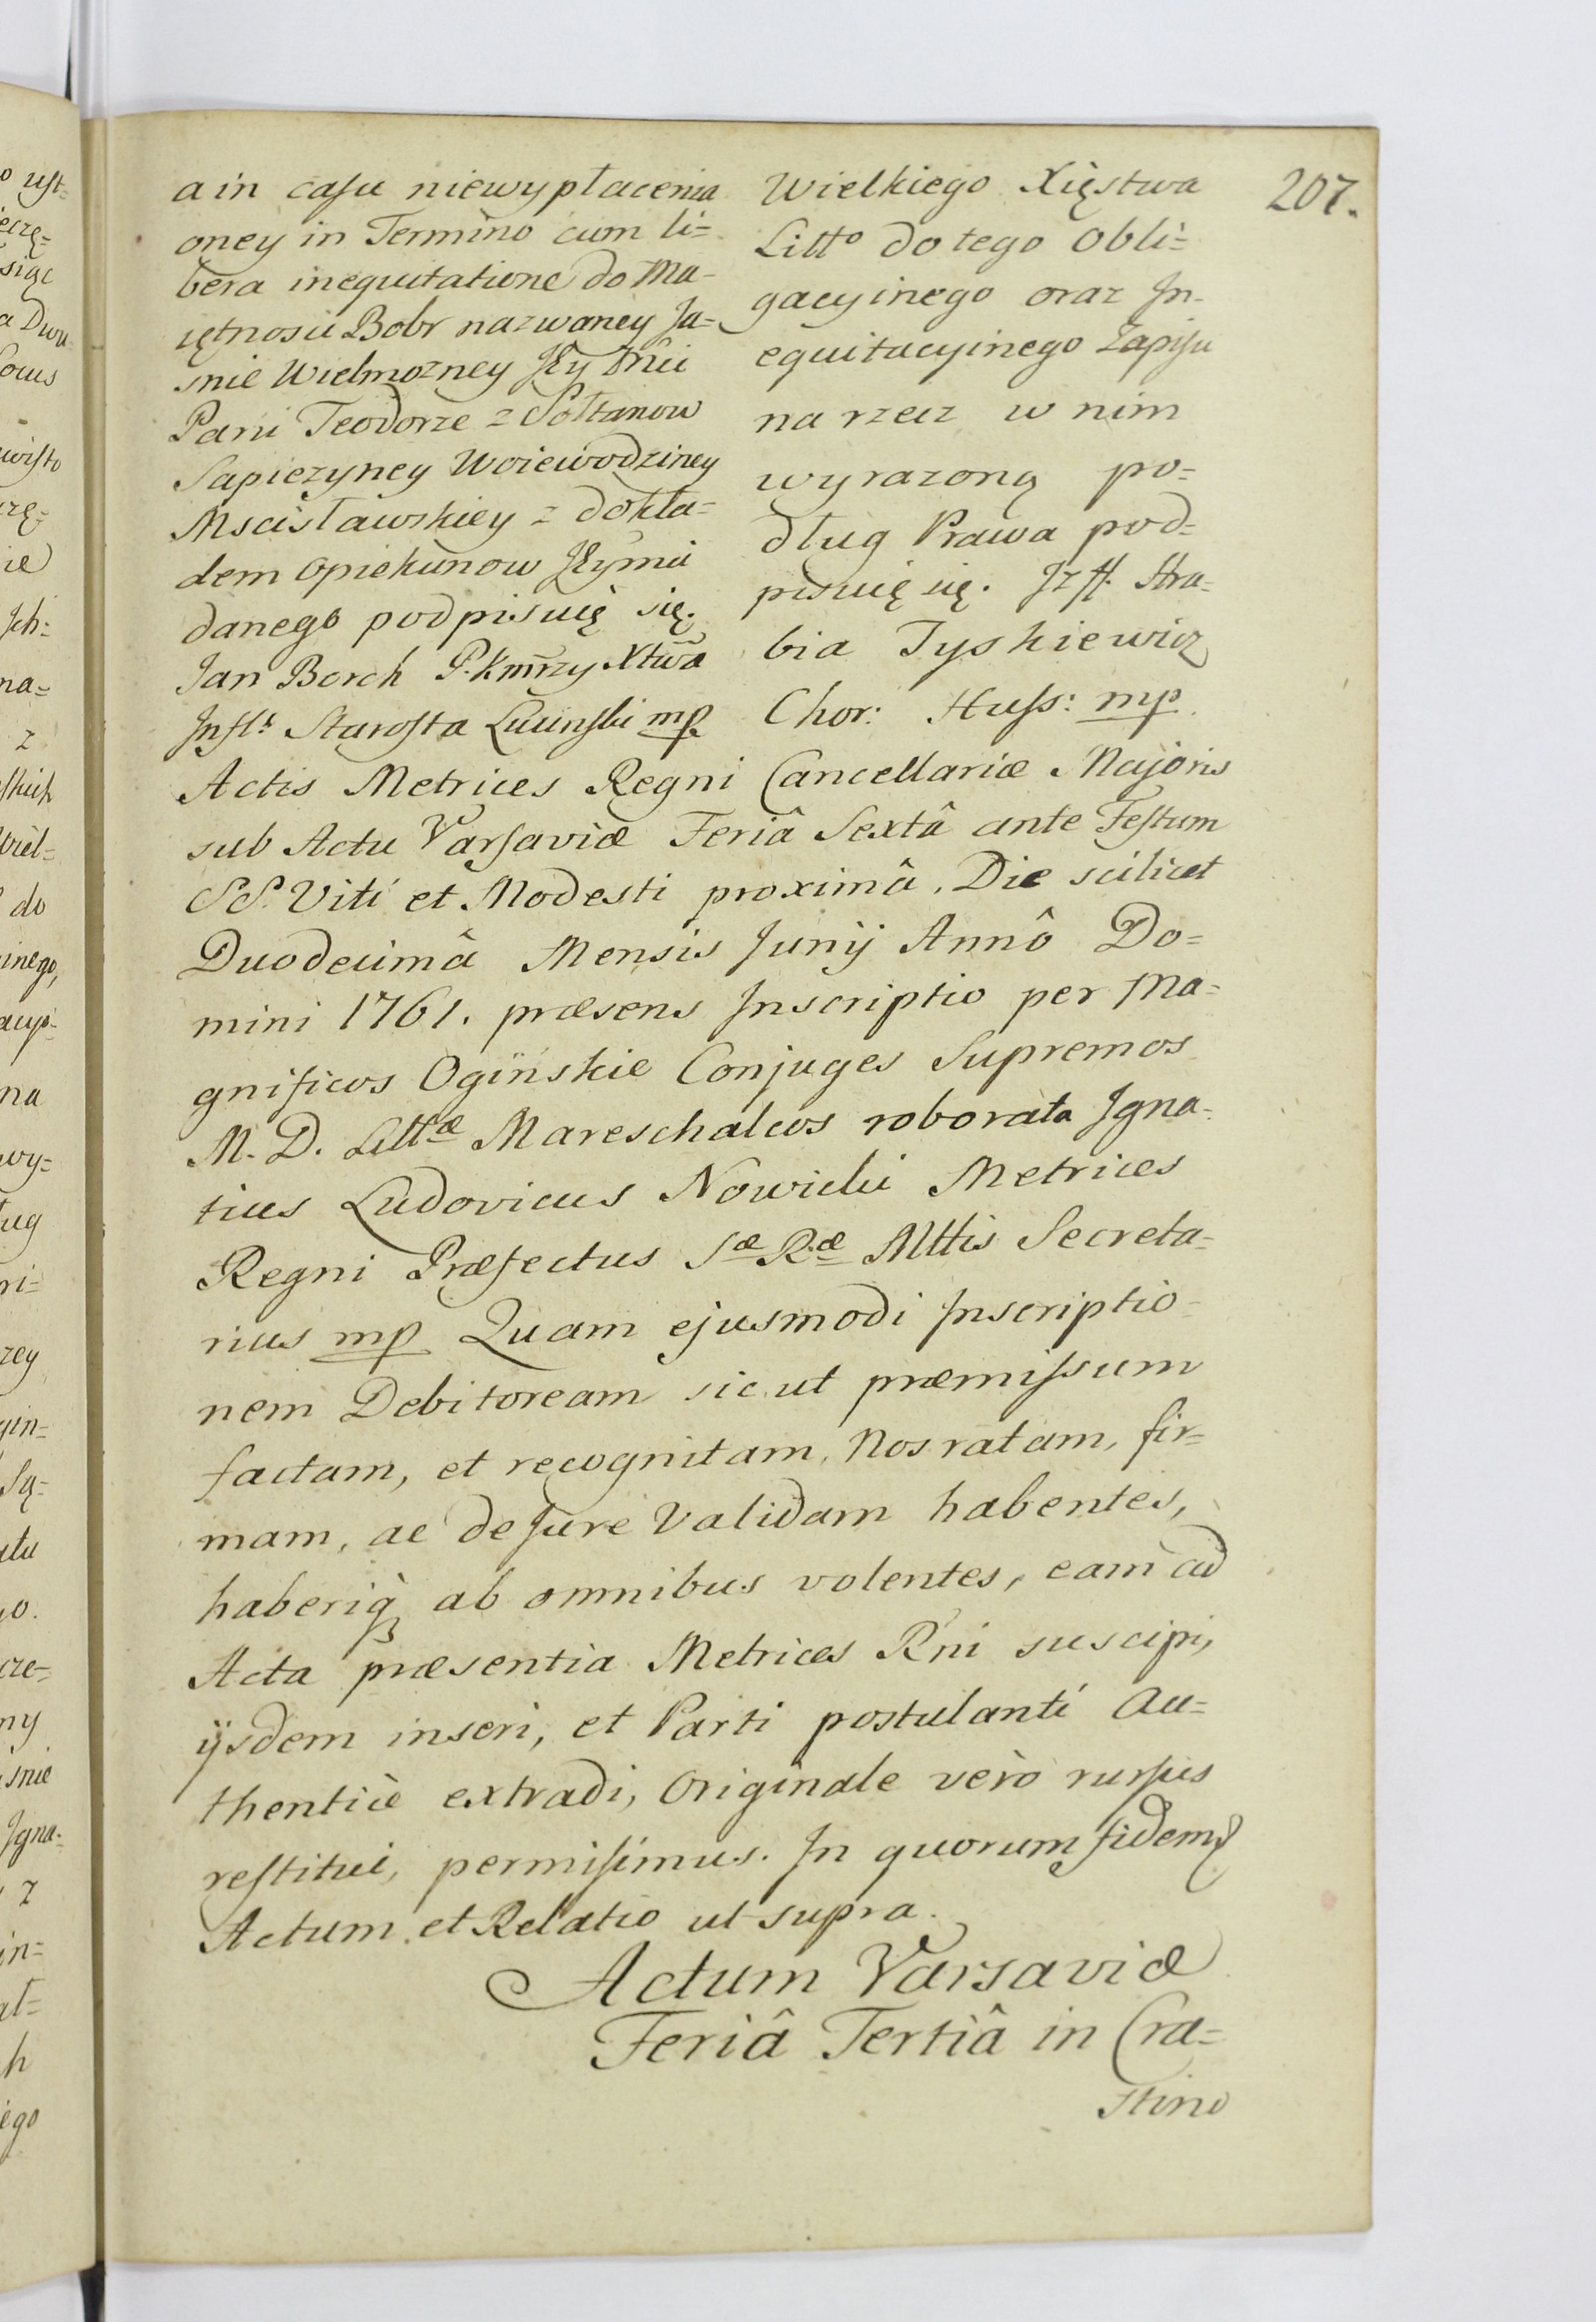 207.
a in casu niewypłacenia
oney in Termino cum li=
bera inequitatione do Ma-
iętnosci Bobr nazwaney Ja=
snie Wielmozney
Pani Teodorze z Sołtanow
Sapiezyney Woiewodziney
Mscisławskiey z dokła=
dem Opiekunow
danego podpisuię się.
Jan Borch P. Kmrzy Xtwa
Infl: Starosta Lucinski mp
Wielkiego Xięstwa
Litto do tego Obli=
gacyinego oraz In-
equitacyinego Zapisu
na rzecz w nim
wyrazoną po=
dług Prawa pod=
pisuię się. Hra=
bia Tyszkiewicz
Chor: Huss: mp.
Actis Metrices Regni Cancellariæ Majoris
sub Actu Varsaviæ Feriâ Sextâ ante Festum
SS. Viti et Modesti proximâ, Die scilicet
Duodecimâ Mensis Junij Annô Do=
mini 1761. præsens Inscriptio per Ma=
gnificos Ogińskie Conjuges Supremos
M. D. Littæ Mareschalcos roborata Igna=
tius Ludovicus Nowicki Metrices
Regni Præfectus Sæ Ræ Mttis Secreta=
rius mp Quam ejusmodi Inscriptio-
nem Debitoream sic ut præmissum
factam, et recognitam, Nos ratam, fir=
mam, ac de Jure Validam habentes,
haberiq ab omnibus volentes, eam ad
Acta præsentia Metrices R'ni suscipi,
ijsdem inseri, et Parti postulanti Au=
thenticè extradi, Originale verò rursus
restitui, permisimus. In quorum fidem
Actum et Relatio ut supra.
Actum Varsaviæ
Feriâ Tertiâ in Cra=
stino